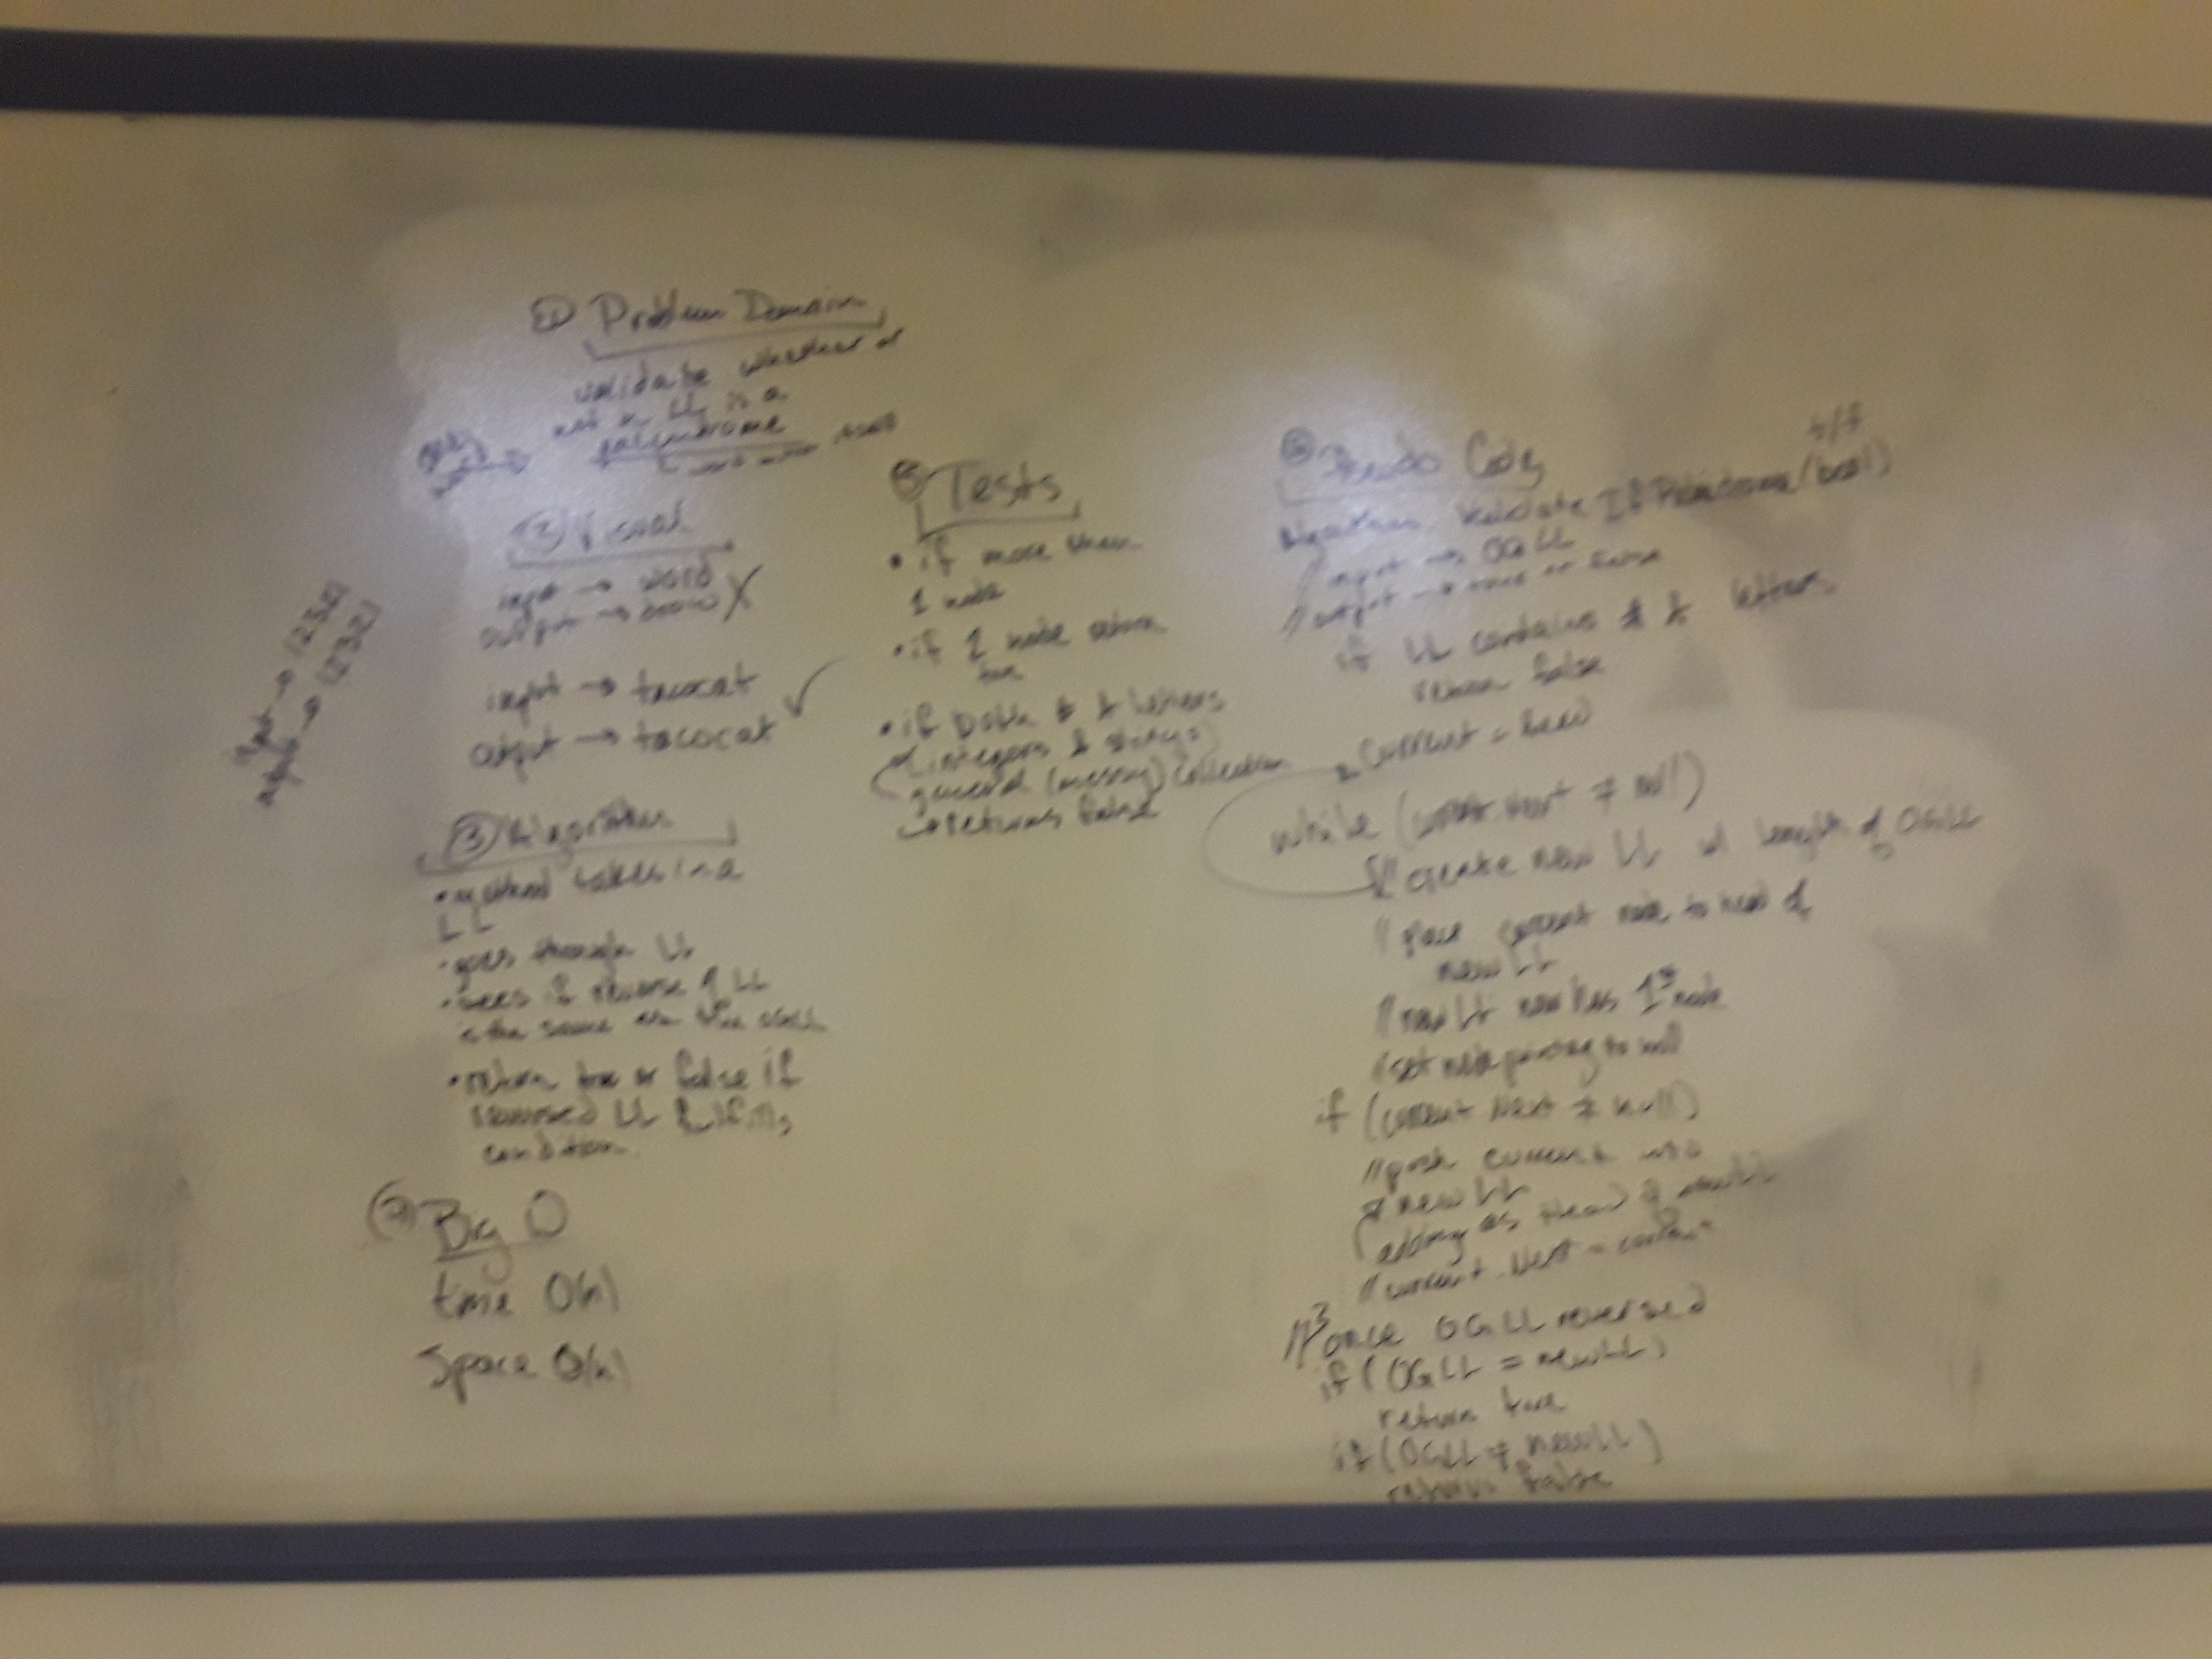 ① Problem Domain
validate whether or
not a LL is a
palendrome
② Visual
input → word
output → drow X
input → tacocat
output → tacocat ✓
input → 12321
output → 12321
③ Algorithm
• method takes in a
LL
• goes through LL
• sees if reverse of LL
is the same as the OGLL
• return true or false if
reversed LL fulfills
condition.
Big O
time O(n)
Space O(n)
Tests
• if more than
1 node
• if 1 node return
true
• if both # & letters
(integers & strings)
general (messy) collection
→ returns false
Pseudo Code
t/f
Algorithm Validate If Palindrome (bool)
// input → OG LL
// output → true or false
if LL contains # & letters
return false
current = head
while (current.Next ≠ null)
// create new LL w/ length of OGLL
// place current node to head of
new LL
// new LL now has 1st node
// set node pointing to null
if (current.Next ≠ null)
// push current into
new LL
adding as Head of newLL
// current.Next =
// once OGLL reversed
if (OGLL = newLL)
return true
if (OGLL ≠ newLL)
return false